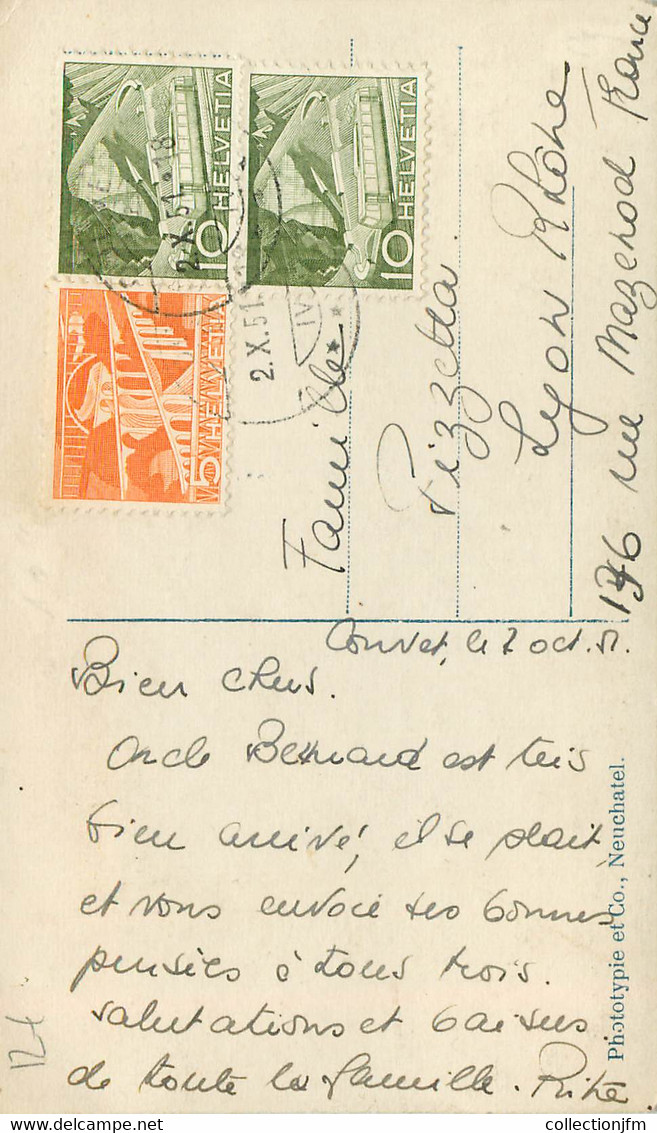 HELVETIA
10
HELVETIA
10
HELVETIA
5
2.X.51-18
2.X.51
Famille
Pizzetta
Lyon Rhône
146 rue Mazenod France
Couvet, le 2 oct. 51.
Bien chers.
Oncle Bernard est très
bien arrivé, il se plait,
et vous envoie ses bonnes
pensées à tous trois.
salutations et baisers
de toute la famille.
Phototypie et Co., Neuchatel.
12f
www.delcampe.net
collectionjfm